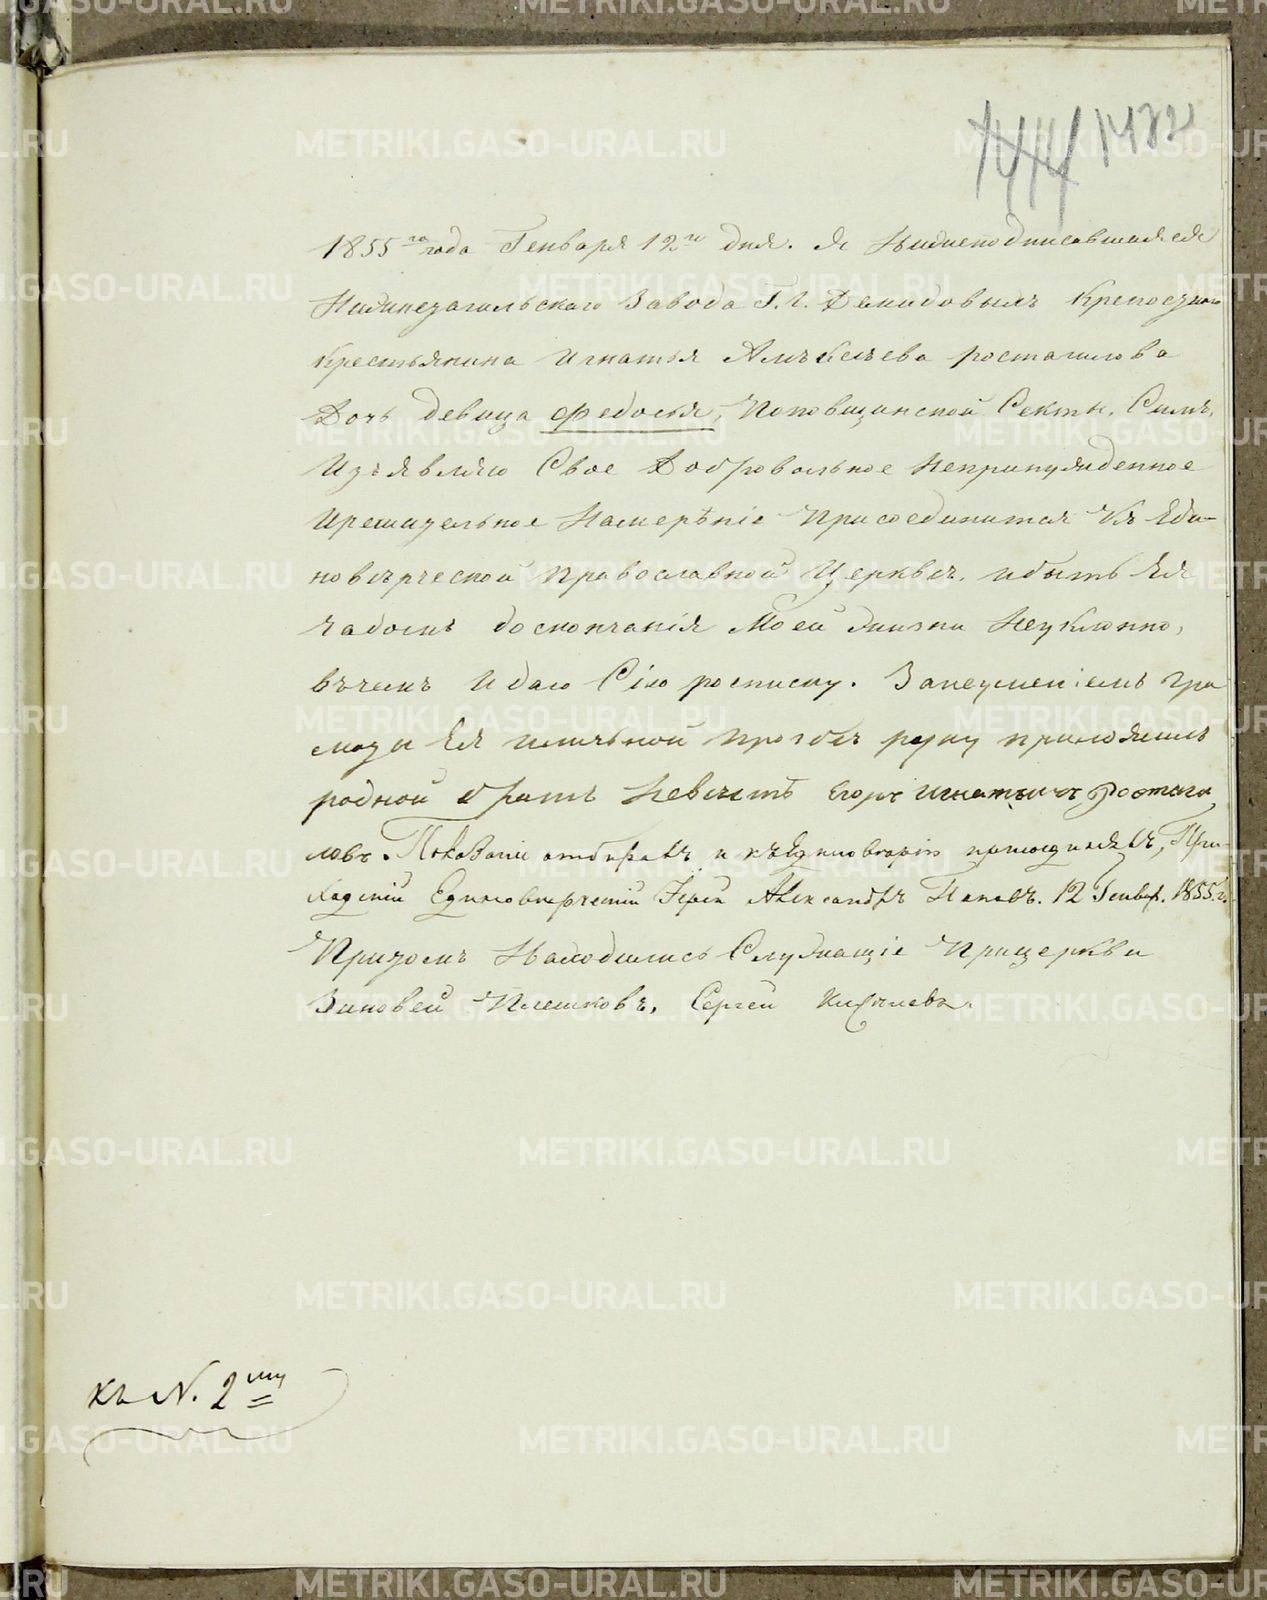 1472
1855го года Генваря 12го дня. Я Нижеподписавшаяся
Нижнетагильскаго Завода Г.Г. Демидовымъ Крепостнаго
Крестьянина Игнатья Алексеева ростагилова
Дочь девица Федосья, Поповщинской Секты. Симъ
Изъявляю Свое Добровольное Непринужденное
Ирешительное Намерѣніе Присоединится Къ Еди-
новерческой Православной Церкве, ибыть Ея
Чадомъ доскончанія Моей жизни Неуклонно,
въчемъ И даю Сію росписку. Занеуменіемъ Гра
моты Ея личьной прозбе руку приложилъ
родной братъ Невесте Егоръ Игнатьичъ Ростаги
ловъ. Показаніе отбиралъ и къ Единоверію присоединялъ, При-
ходскій Единоверческій Іерей Александръ Поповъ. 12 Генвар. 1855 г.
Притомъ Находились Служащіе Прицеркви
Зиновей Плешковъ. Сергей Киселевъ.
къ N. 2му
METRIKI.GASO-URAL.RU